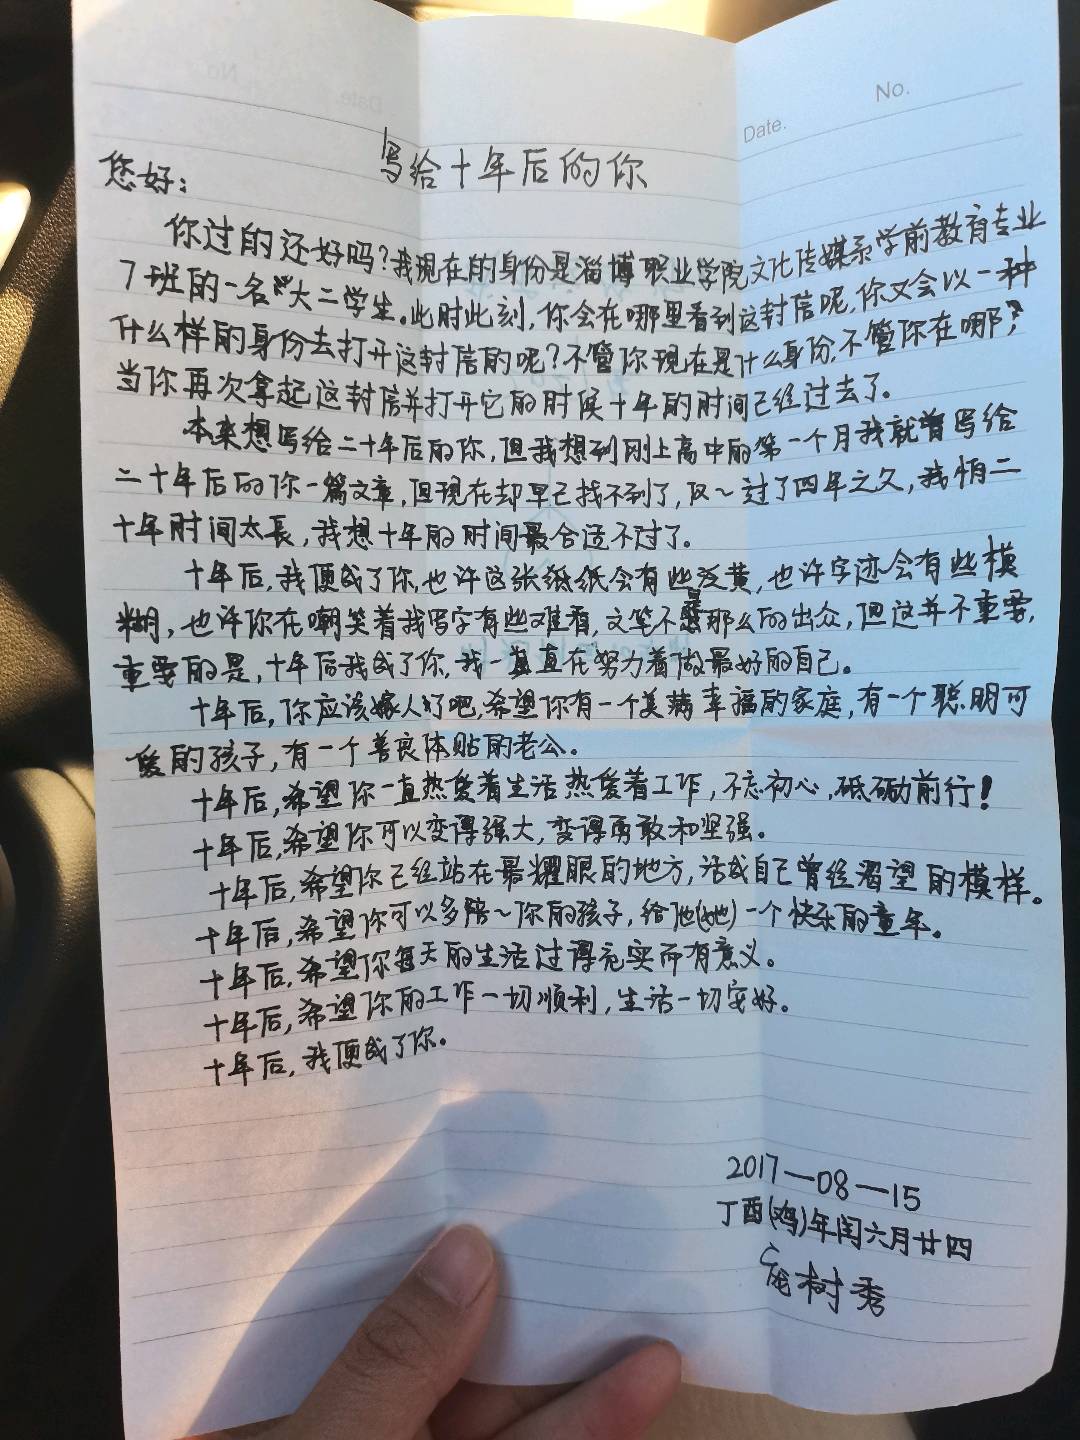 No.
Date.
写给十年后的你
您好:
你过的还好吗?我现在的身份是淄博职业学院文化传媒系学前教育专业
7班的一名“大二学生。此时此刻,你会在哪里看到这封信呢,你又会以一种
什么样的身份去打开这封信的呢?不管你现在是什么身份,不管你在哪?
当你再次拿起这封信并打开它的时候十年的时间已经过去了。
本来想写给二十年后的你,但我想到刚上高中的第一个月我就曾写给
二十年后的你一篇文章,但现在却早已找不到了,仅~过了四年之久,我怕二
十年时间太長,我想十年的时间最合适不过了。
十年后,我便成了你,也许这张纸纸会有些泛黄,也许字迹会有些模
糊,也许你在嘲笑着我写字有些难看,文笔不是那么的出众,但这并不重要,
重要的是,十年后我成了你,我一直直在努力着做最好的自己。
十年后,你应该嫁人了吧,希望你有一个美满幸福的家庭,有一个聪明可
爱的孩子,有一个善良体贴的老公。
十年后,希望你一直热爱着生活热爱着工作,不忘初心,砥砺前行!
十年后,希望你可以变得强大,变得勇敢和坚强。
十年后,希望你已经站在最耀眼的地方,活成自己曾经渴望的模样。
十年后,希望你可以多陪~你的孩子,给他(她)一个快乐的童年。
十年后,希望你每天的生活过得充实而有意义。
十年后,希望你的工作一切顺利,生活一切安好。
十年后,我便成了你。
2017—08—15
丁酉(鸡)年闰六月廿四
庞树秀